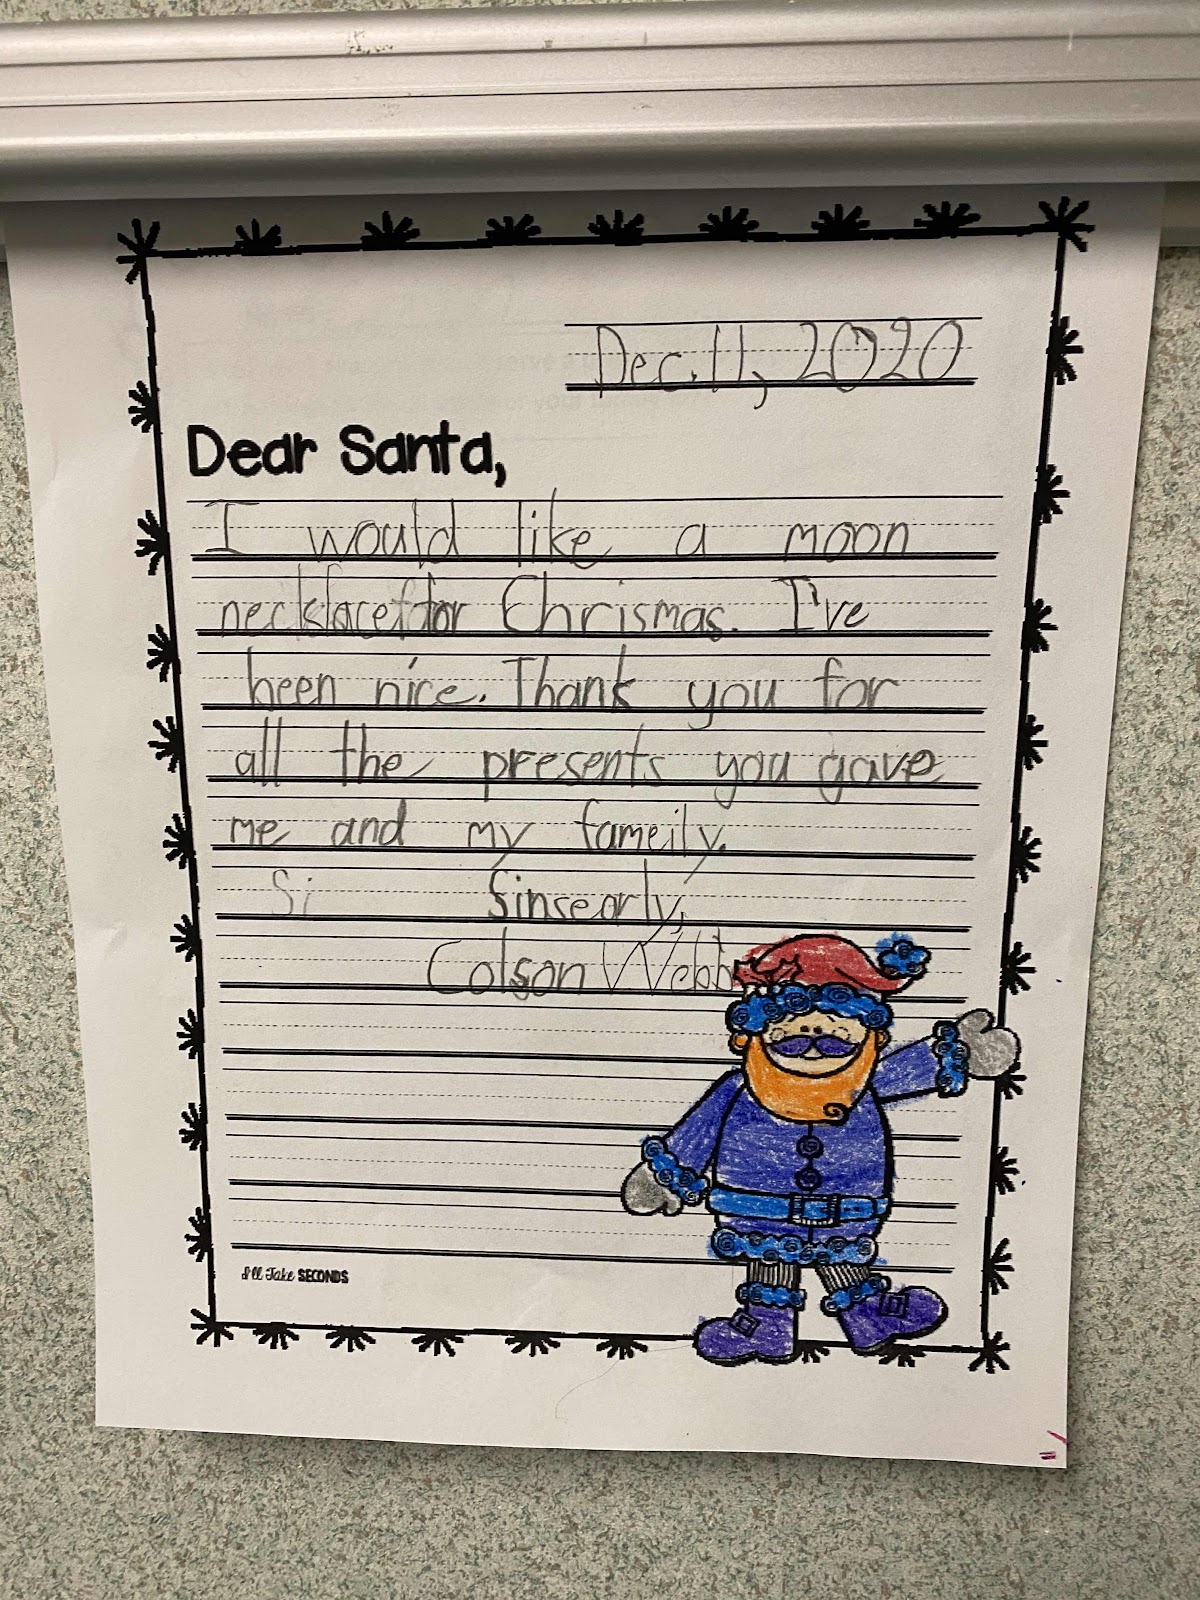 Dec. 11, 2020
Dear Santa,
I would like a moon
necklace for Chrismas. I've
been nice. Thank you for
all the presents you gave
me and my fameily.
Si Sinsearly,
Colson Webb
I'll Take SECONDS